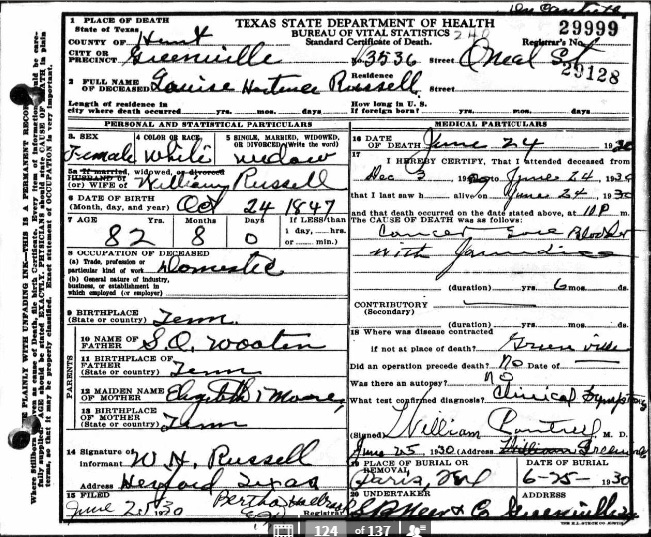 TEXAS STATE DEPARTMENT OF HEALTH
BUREAU OF VITAL STATISTICS
Standard Certificate of Death.
29999
Registrar's No.
29128
1 PLACE OF DEATH
State of Texas
COUNTY OF Hunt
CITY OR PRECINCT Greenville No. 3536 Street O'Neal St
2 FULL NAME OF DECEASED Louise Hortense Russell Residence Street
Length of residence in city where death occurred yrs. mos. days How long in U. S. if foreign born? yrs. mos. days
PERSONAL AND STATISTICAL PARTICULARS
3. SEX Female
4 COLOR OR RACE, White
5 SINGLE, MARRIED, WIDOWED, OR DIVORCED (Write the word) widow
5a If married, widowed, or divorced
HUSBAND of
(or) WIFE of William Russell
6 DATE OF BIRTH
(Month, day, and year) Oct 24 1847
7 AGE Yrs. Months Days If LESS than
1 day, hrs.
or min.)
82 8 0
8 OCCUPATION OF DECEASED
(a) Trade, profession or
particular kind of work Domestic
(b) General nature of industry,
business, or establishment in
which employed (or employer)
9 BIRTHPLACE
(State or country) Tenn
PARENTS
10 NAME OF FATHER S.Q. Wooten
11 BIRTHPLACE OF FATHER
(State or country) Tenn
12 MAIDEN NAME OF MOTHER Elizabeth Moore
13 BIRTHPLACE OF MOTHER
(State or country) Tenn
14 Signature of Informant W. H. Russell
Address Texas
15 FILED June 1930 Bertha Registrar
MEDICAL PARTICULARS
16 DATE OF DEATH June 24 1930
17 I HEREBY CERTIFY, That I attended deceased from
Dec 3 1929 to June 24 1930
that I last saw h alive on June 24, 1930
and that death occurred on the date stated above, at 10 P. m.
The CAUSE OF DEATH was as follows:
Cancer Bladder
with Jaundice
(duration) yrs. 6 mos. ds.
CONTRIBUTORY
(Secondary)
(duration) yrs. mos. ds.
18 Where was disease contracted
if not at place of death? Greenville
Did an operation precede death? No Date of
Was there an autopsy? No
What test confirmed diagnosis? Clinical Symptoms
(Signed) William Cantrell M. D.
June 25 1930 (Address) Greenville
19 PLACE OF BURIAL OR REMOVAL
Paris, Tex
DATE OF BURIAL
6-25-1930
20 UNDERTAKER ADDRESS
& Co Greenville
124 of 137